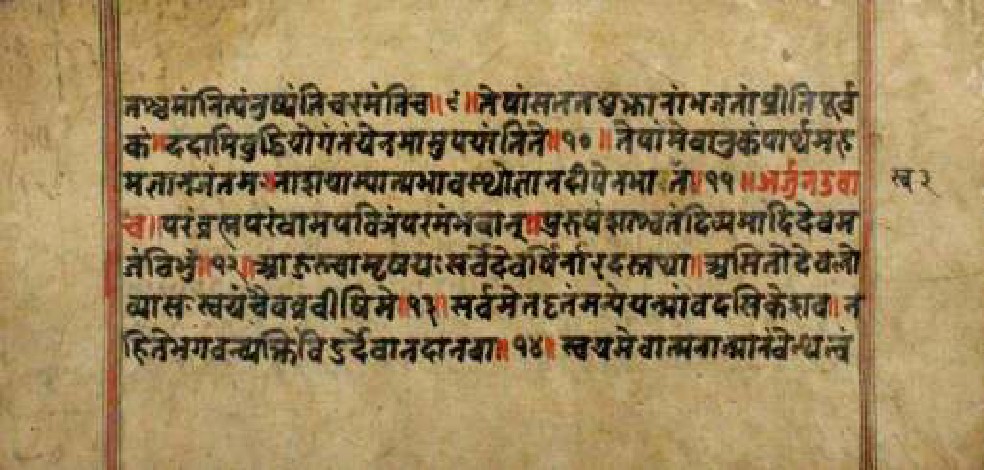 तश्चमांनित्यंतुष्यंतिचरमंतिच॥९॥तेषांसततयुक्तानांभजतांप्रीतिपूर्व
कं॥ददामिबुद्धियोगंतंयेनमामुपयांतिते॥१०॥तेषामेवानुकंपार्थमह
मज्ञानजंतमःनाशयाम्यात्मभावस्थोज्ञानदीपेनभास्वता॥११॥अर्जुनउवा
च॥परंब्रह्मपरंधामपवित्रंपरमंभवान्॥पुरुषंशाश्वतंदिव्यमादिदेवम
जंविभुं॥१२॥आहुस्त्वामृषयःसर्वेदेवर्षिर्नारदस्तथा॥असितोदेवलो
व्यासःस्वयंचैवब्रवीषिमे॥१३॥सर्वमेतदृतंमन्येयन्मांवदसिकेशव॥न
हितेभगवन्व्यक्तिंविदुर्देवानदानवा॥१४॥स्वयमेवात्मनात्मानंवेत्थत्वं